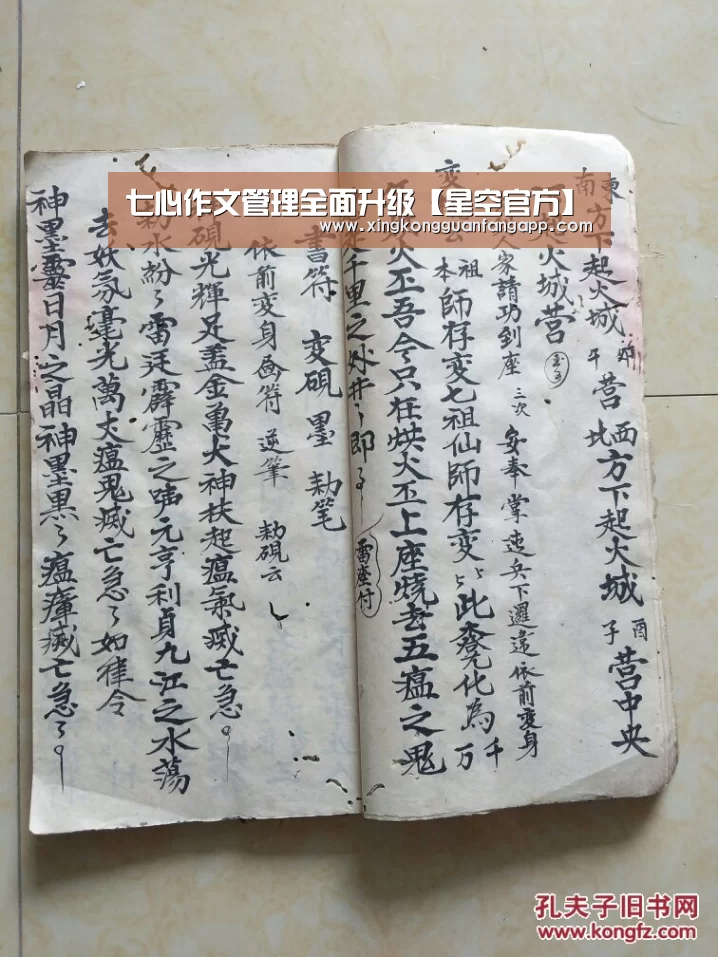 七心作文管理全面升级【星空官方】
www.xingkongguanfangapp.com
東南方下起火城 卯午 营 西北方下起火城 酉子 营中央
火城营
人家請功到座 三次 安奉掌 速兵下邏 依前变身
变 本祖師存变七祖仙師存变 此 化為千万
火丕吾今只在烘火丕上座燒去五瘟之鬼
千里之外井〻即〻 雷座付
書符 变硯 墨 勅笔
依前变身画符 逆筆 勅硯云
硯光輝足盖金亀大神扶起瘟氣滅亡急〻
水紛〻雷廷霹靂之 元亨利貞九江之水蕩
去妖氛毫光萬丈瘟鬼滅亡急〻如律令
神墨靈日月之晶神墨黑〻瘟瘴滅亡急〻
孔夫子旧书网
www.kongfz.com